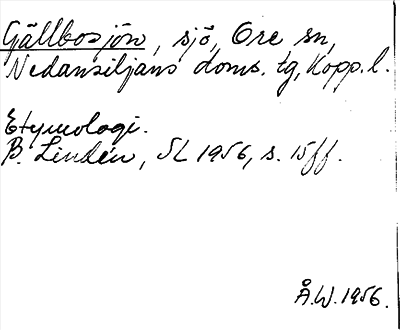 Gällbosjön, sjö, Ore sn,
Nedansiljans doms. tg, Kopp. l.
Etymologi.
B. Lindén, SL 1956, s. 15 ff.
Å.W. 1956.